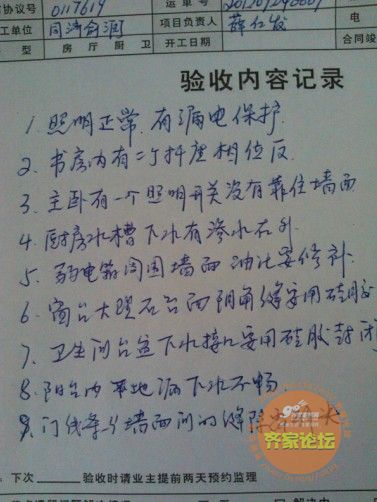 协议号 0117619 运单号
工单位 同济 项目负责人 薛仁发 电
型 房厅厨卫 开工日期 合同竣
验收内容记录
1. 照明正常.有漏电保护.
2. 书房内有二个插座相位反
3. 主卧有一个照明开关没有靠住墙面
4. 厨房水槽下水有渗水在外.
5. 弱电箱周围墙面油比要修补.
6. 窗台大理石台面阴角缝要用硅胶
7. 卫生间台盆下水接口要用硅胶封闭
8. 阳台内 地漏下水不畅
9. 门线条与墙面间的缝隙
齐家论坛
下次 验收时请业主提前两天预约监理